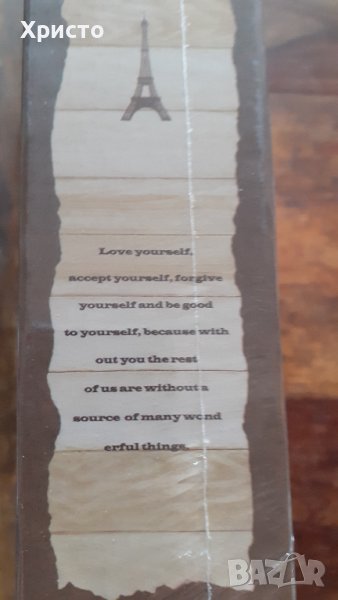 Христо
Love yourself,
accept yourself, forgive
yourself and be good
to yourself, because with
out you the rest
of us are without a
source of many wond
erful things.
BAZAR.bg